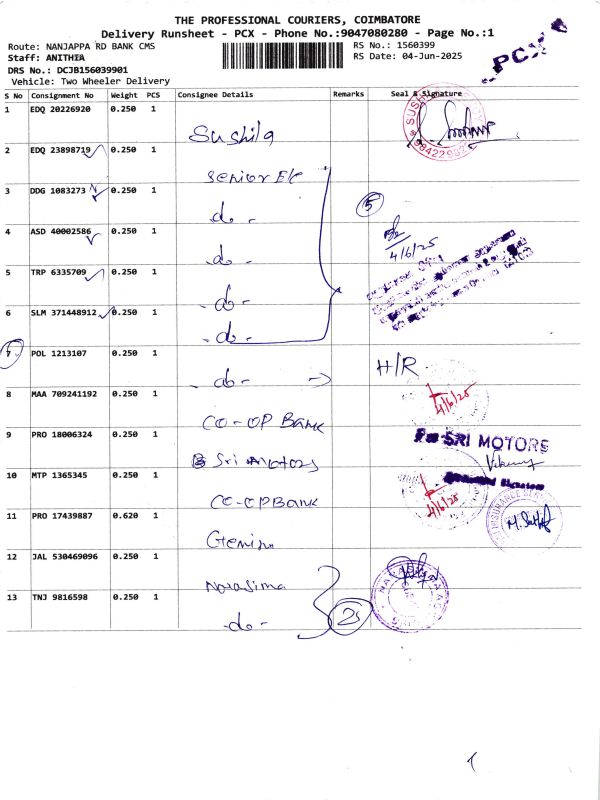 THE PROFESSIONAL COURIERS, COIMBATORE
Delivery Runsheet - PCX - Phone No.:9047080280 - Page No.:1
Route: NANJAPPA RD BANK CMS
RS No.: 1560399
Staff: ANITHIA
RS Date: 04-Jun-2025
DRS No.: DCJB156039901
Vehicle: Two Wheeler Delivery
PCX
S No Consignment No Weight PCS Consignee Details Remarks Seal & Signature
1 EDQ 20226920 0.250 1 Sushila
2 EDQ 23898719 0.250 1 Senior EE
3 DDG 1083273 0.250 1 -do-
4 ASD 40002586 0.250 1 -do-
5 TRP 6335709 0.250 1 -do-
6 SLM 371448912 0.250 1 -do-
5
4/6/25
7 POL 1213107 0.250 1 -do- H/R
8 MAA 709241192 0.250 1 CO-OP Bank
4/6/25
9 PRO 18006324 0.250 1 Sri Motors
For SRI MOTORS
10 MTP 1365345 0.250 1 CO-OP Bank
4/6/25
11 PRO 17439887 0.620 1 Gemini
12 JAL 530469096 0.250 1 Narasima
13 TNJ 9816598 0.250 1 -do-
2